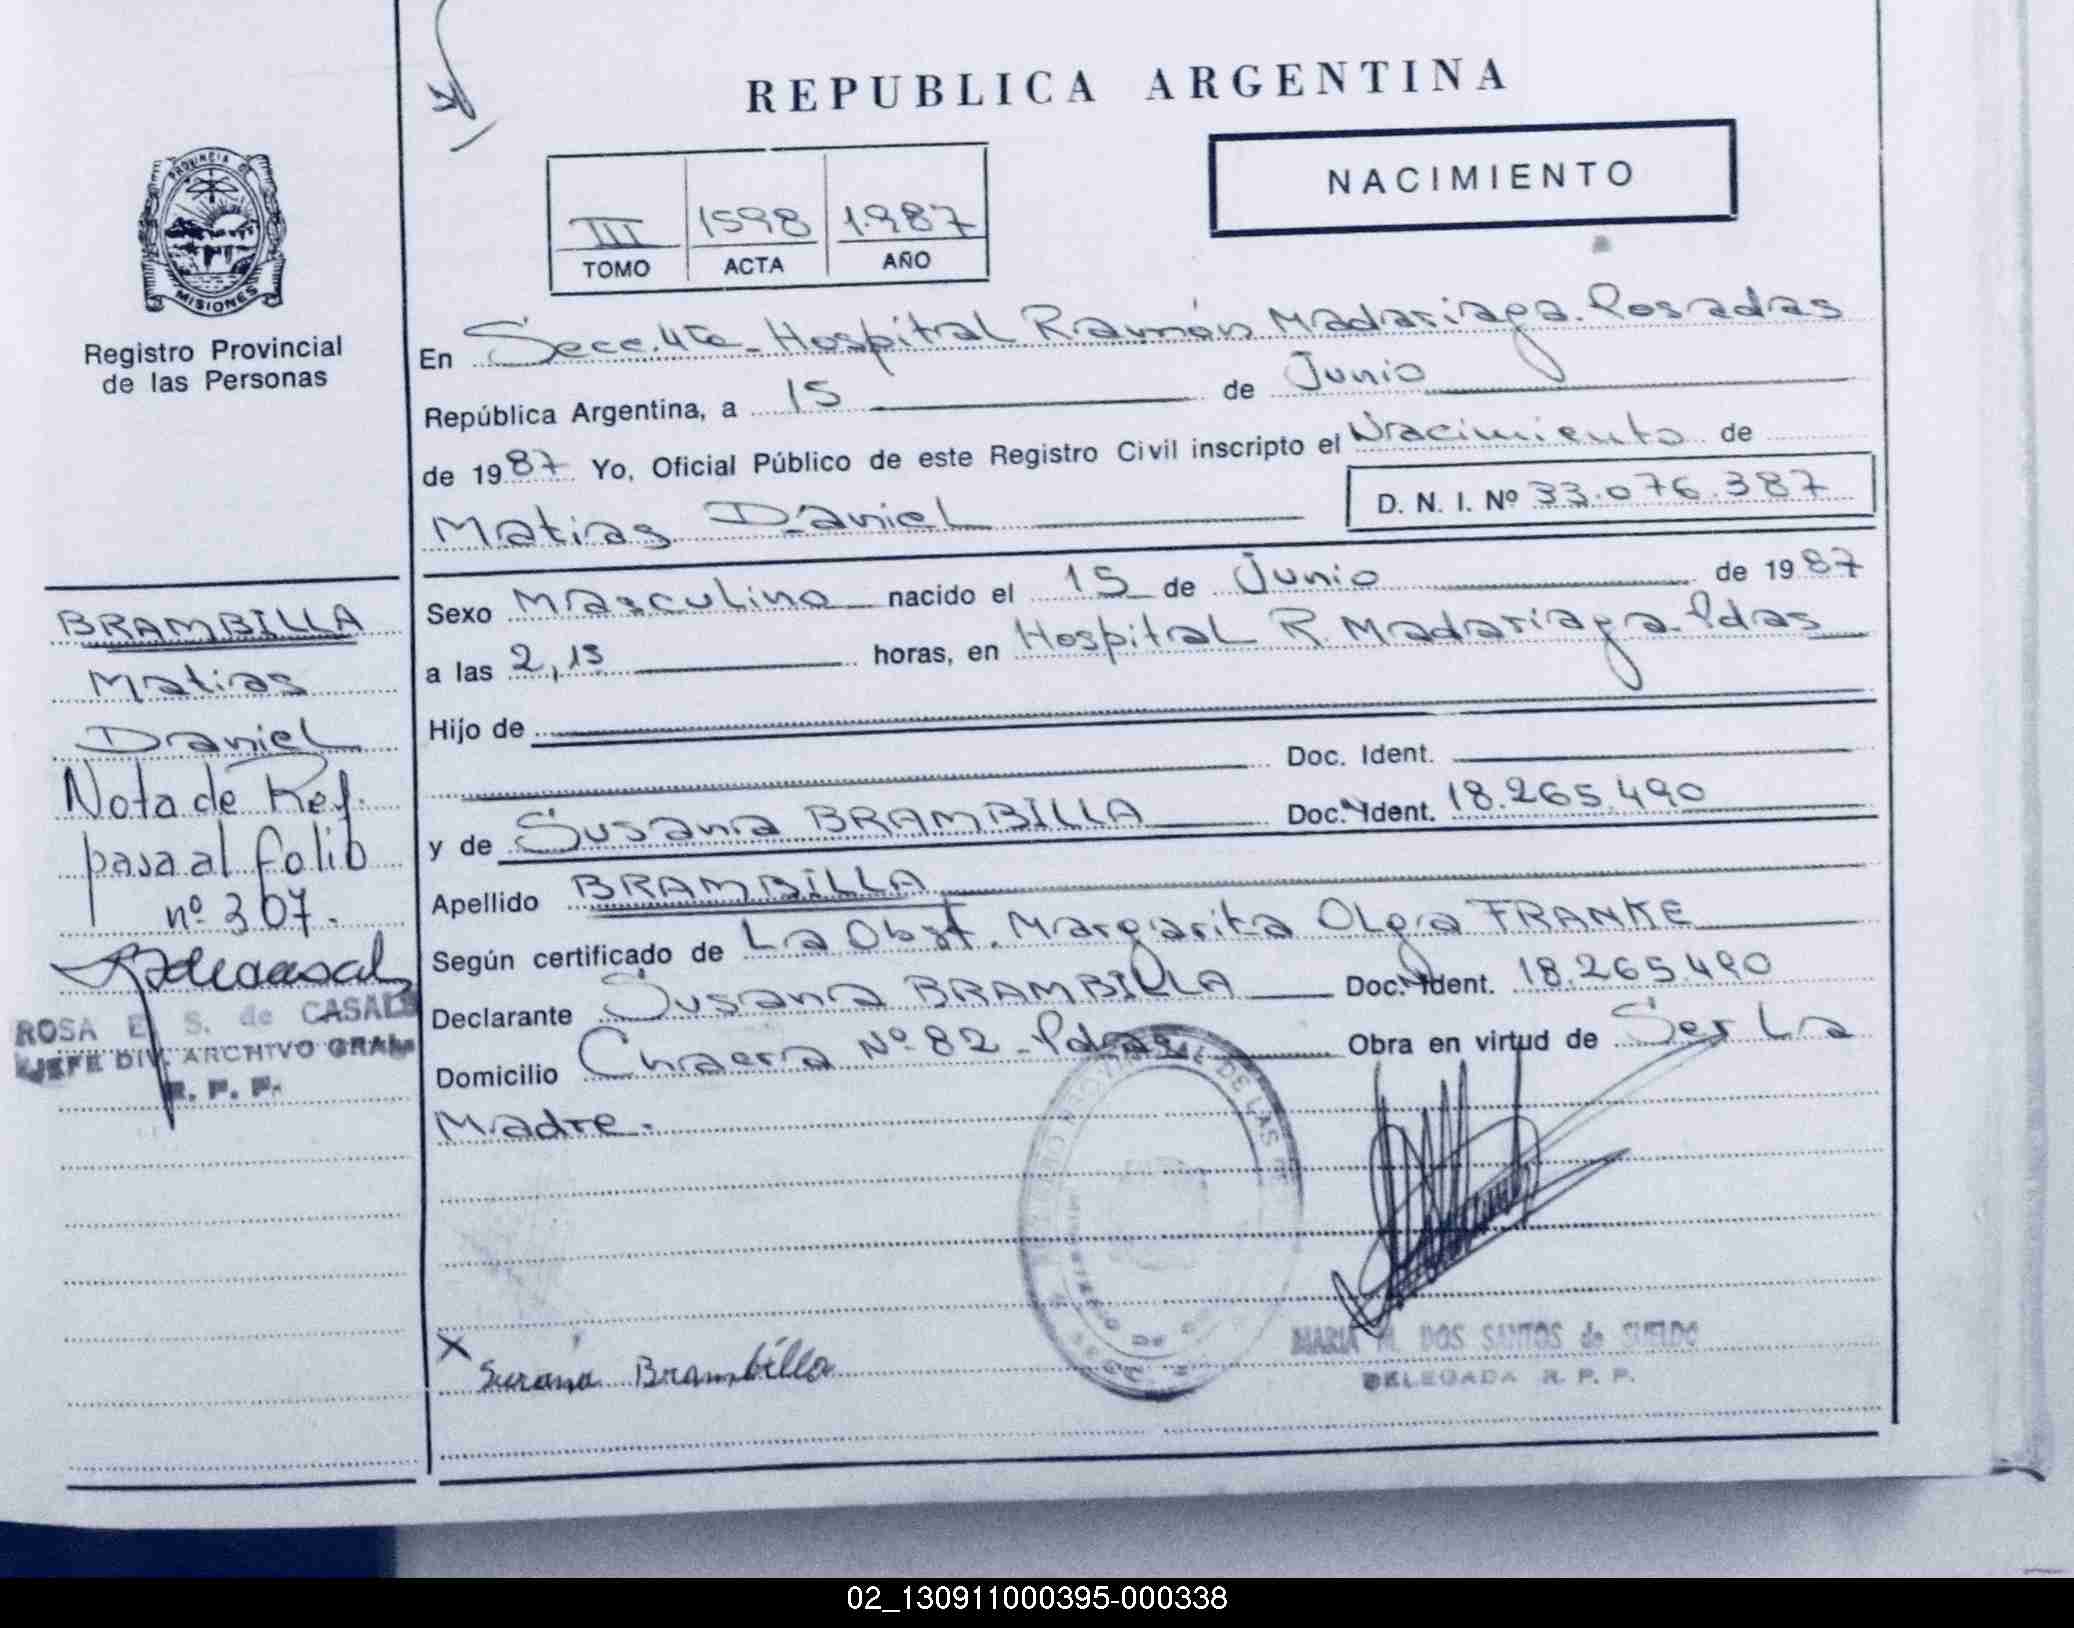 REPUBLICA ARGENTINA
NACIMIENTO
III 1598 1.987
TOMO ACTA AÑO
PROVINCIA DE
MISIONES
Registro Provincial
de las Personas
En Secc. 4ta - Hospital Ramón Madariaga. Posadas
República Argentina, a 15 de Junio
de 1987 Yo, Oficial Público de este Registro Civil inscripto el Nacimiento de
Matias Daniel
D. N. I. Nº 33.076.387
Sexo Masculino nacido el 15 de Junio de 1987
a las 2,15 horas, en Hospital R. Madariaga - Pdas
Hijo de
Doc. Ident.
y de Susana BRAMBILLA Doc. Ident. 18.265.490
Apellido BRAMBILLA
Según certificado de La Obst. Margarita Olga FRANKE
Declarante Susana BRAMBILLA Doc. Ident. 18.265.490
Domicilio Chacra Nº 82 - Pdas Obra en virtud de Ser La
Madre.
BRAMBILLA
Matias
Daniel
Nota de Ref.
pasa al folio
nº 307.
ROSA E. S. de CASALS
JEFE DIV. ARCHIVO GRAL
R. P. P.
DE LAS
X Susana Brambilla
MARIA M. DOS SANTOS de SUELDO
DELEGADA R. P. P.
02_130911000395-000338